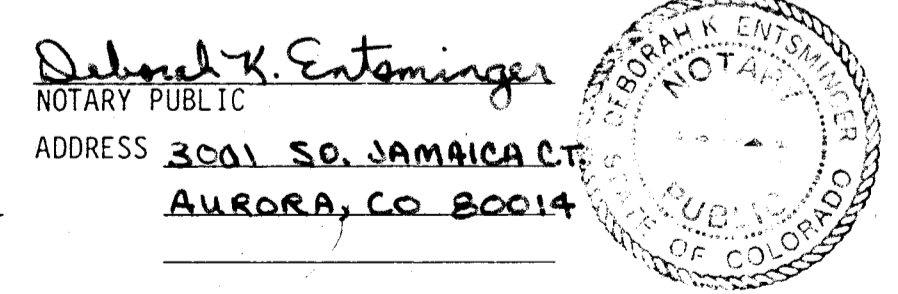 Deborah K. Entsminger
NOTARY PUBLIC
ADDRESS 3001 SO. JAMAICA CT.
AURORA, CO 80014
DEBORAH K ENTSMINGER
NOTARY
PUBLIC
STATE OF COLORADO